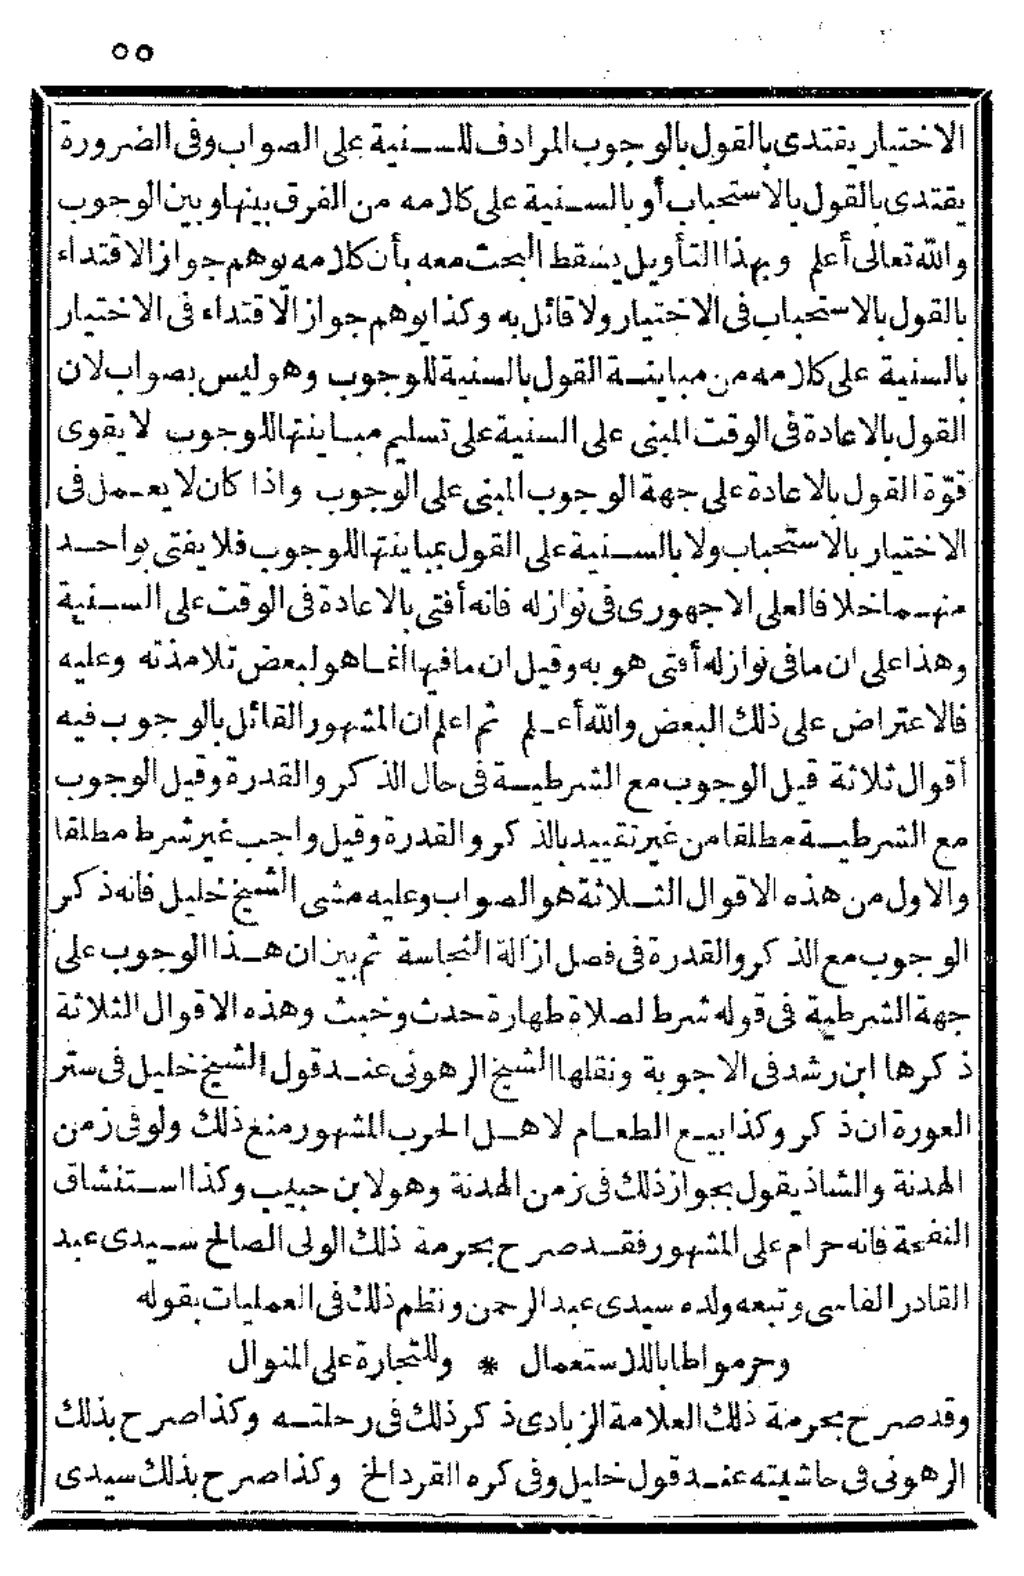 ٥٥
الاختيار يقتدى بالقول بالوجوب المرادف للسنية على الصواب وفى الضرورة
يقتدى بالقول بالاستحباب أو بالسنية على كلامه من الفرق بينها وبين الوجوب
والله تعالى أعلم وبهذا التأويل يسقط البحث معه بأن كلامه يوهم جواز الاقتداء
بالقول بالاستحباب فى الاختيار ولا قائل به وكذا يوهم جواز الاقتداء فى الاختيار
بالسنية على كلامه من مباينة القول بالسنية للوجوب وهو ليس بصواب لان
القول بالاعادة فى الوقت المبنى على السنية على تسليم مباينتها للوجوب لا يقوى
قوّة القول بالاعادة على جهة الوجوب المبنى على الوجوب واذا كان لا يعمل فى
الاختيار بالاستحباب ولا بالسنية على القول بمباينتها للوجوب فلا يفتى بواحد
منهما خلافا لعلى الاجهورى فى نوازله فانه أفتى بالاعادة فى الوقت على السنية
وهذا على ان ما فى نوازله أفتى هو به وقيل ان ما فيها انما هو لبعض تلامذته وعليه
فالاعتراض على ذلك البعض والله أعلم ثم اعلم ان المشهور القائل بالوجوب فيه
أقوال ثلاثة قيل الوجوب مع الشرطية فى حال الذكر والقدرة وقيل الوجوب
مع الشرطية مطلقا من غير تقييد بالذكر والقدرة وقيل واجب غير شرط مطلقا
والاول من هذه الاقوال الثلاثة هو الصواب وعليه مشى الشيخ خليل فانه ذكر
الوجوب مع الذكر والقدرة فى فصل ازالة النجاسة ثم بين ان هذا الوجوب على
جهة الشرطية فى قوله شرط لصلاة طهارة حدث وخبث وهذه الاقوال الثلاثة
ذكرها ابن رشد فى الاجوبة ونقلها الشيخ الرهونى عند قول الشيخ خليل فى ستر
العورة ان ذكر وكذا بيع الطعام لاهل الحرب المشهور منع ذلك ولو فى زمن
الهدنة والشاذ يقول بجواز ذلك فى زمن الهدنة وهو لابن حبيب وكذا استنشاق
النفحة فانه حرام على المشهور فقد صرح بحرمة ذلك الولى الصالح سيدى عبد
القادر الفاسى وتبعه ولده سيدى عبد الرحمن ونظم ذلك فى العمليات بقوله
وحرموا طابا للاستعمال * وللتجارة على المنوال
وقد صرح بحرمة ذلك العلامة الزبادى ذكر ذلك فى رحلته وكذا صرح بذلك
الرهونى فى حاشيته عند قول خليل وفى كره القرد الخ وكذا صرح بذلك سيدى